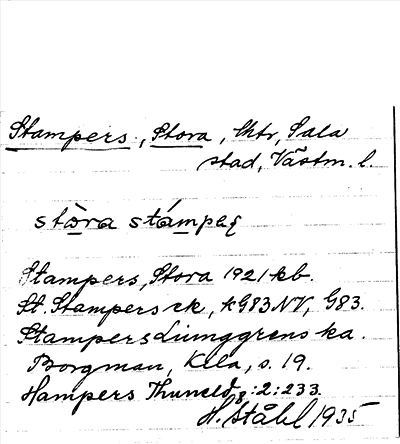 Stampers, Stora, lhtr, Sala
stad, Västm. l.
stòra stámpeʂ
Stampers, Stora 1921 kb.
St. Stampers ek, kG83NV, G83.
Stampers Ljunggrens ka.
Borgman, Kila, s. 19.
Hampers Thuneld 8:2:233.
H. Ståhl 1935